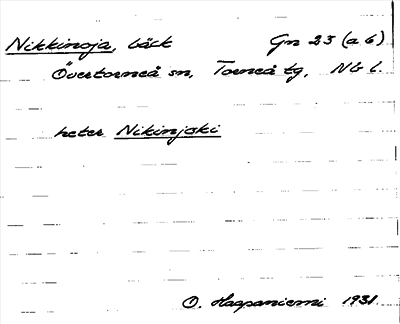 Nikkinoja, bäck Gn 23 (a 6)
Övertorneå sn, Torneå tg, NB l.
heter Nikinjoki
O. Haapaniemi 1931